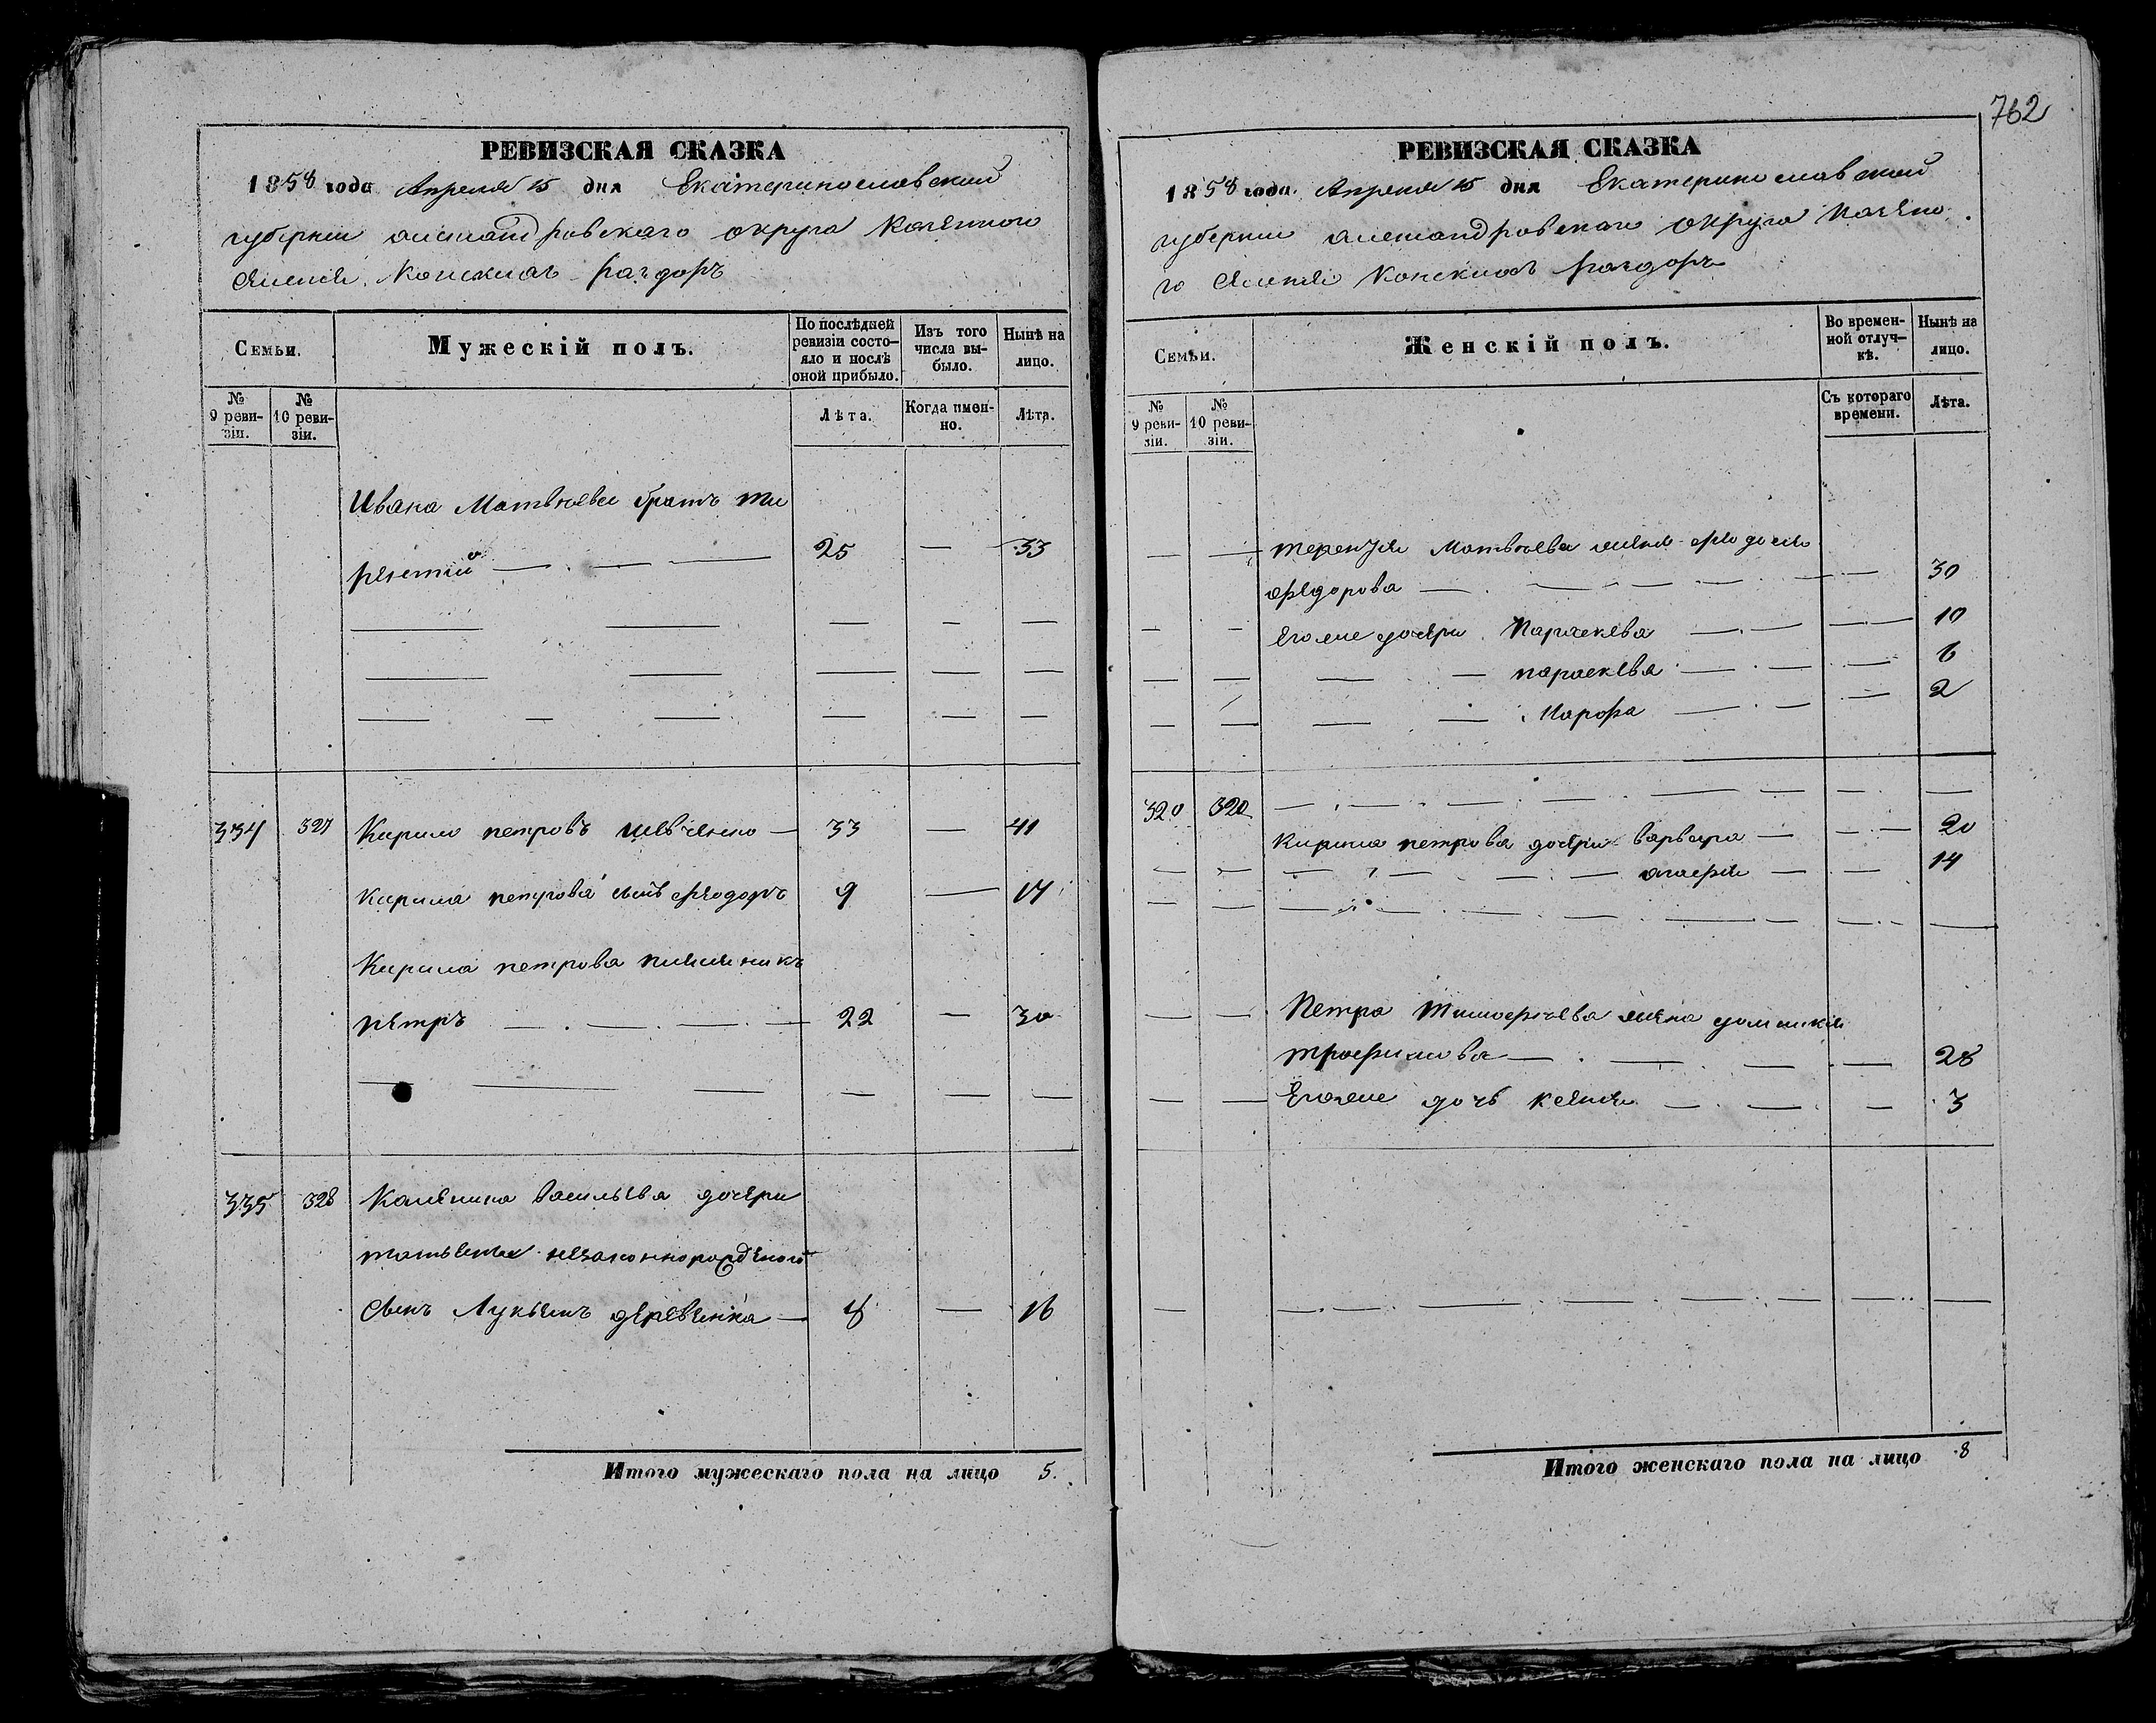 762
РЕВИЗСКАЯ СКАЗКА
1858 года Апреля 15 дня Екатеринославской
губернии александровскаго округа Казенного
селения Конскихъ раздоръ
Семьи.
Мужескій полъ.
По послѣдней ревизіи состояло и послѣ оной прибыло.
Изъ того числа выбыло.
Нынѣ на лицо.
№ 9 ревизіи.
№ 10 ревизіи.
Лѣта.
Когда именно.
Лѣта.
Ивана Матвѣева братъ Те
рентій — 25 — 33
334 327 Кирило петровъ шевченко — 33 — 41
Кирила петрова сынъ феодоръ 9 — 17
Кирила петрова племяникъ
петръ — 22 — 30
335 328 Каленика васильева дочери
татьяны незаконнорожденого
сынъ Лукьянъ деревянка — 8 — 16
Итого мужескаго пола на лицо 5.
РЕВИЗСКАЯ СКАЗКА
1858 года. Апреля 15 дня Екатеринославской
губернии александровскаго округа казено
го селения Конскихъ раздоръ
Семьи.
Женскій полъ.
Во временной отлучкѣ.
Нынѣ на лицо.
№ 9 ревизіи.
№ 10 ревизіи.
Съ котораго времени.
Лѣта.
терентия Матвѣева жена феодосия
федорова — 30
Его же дочери Параскева — 10
параскева — 6
Марфа — 2
320 320
Кирила петрова дочери варвара — 20
агафия — 14
Петра тимофѣева жена домникия
трофимова — 28
Его же дочь ксения — 3
Итого женскаго пола на лицо 8